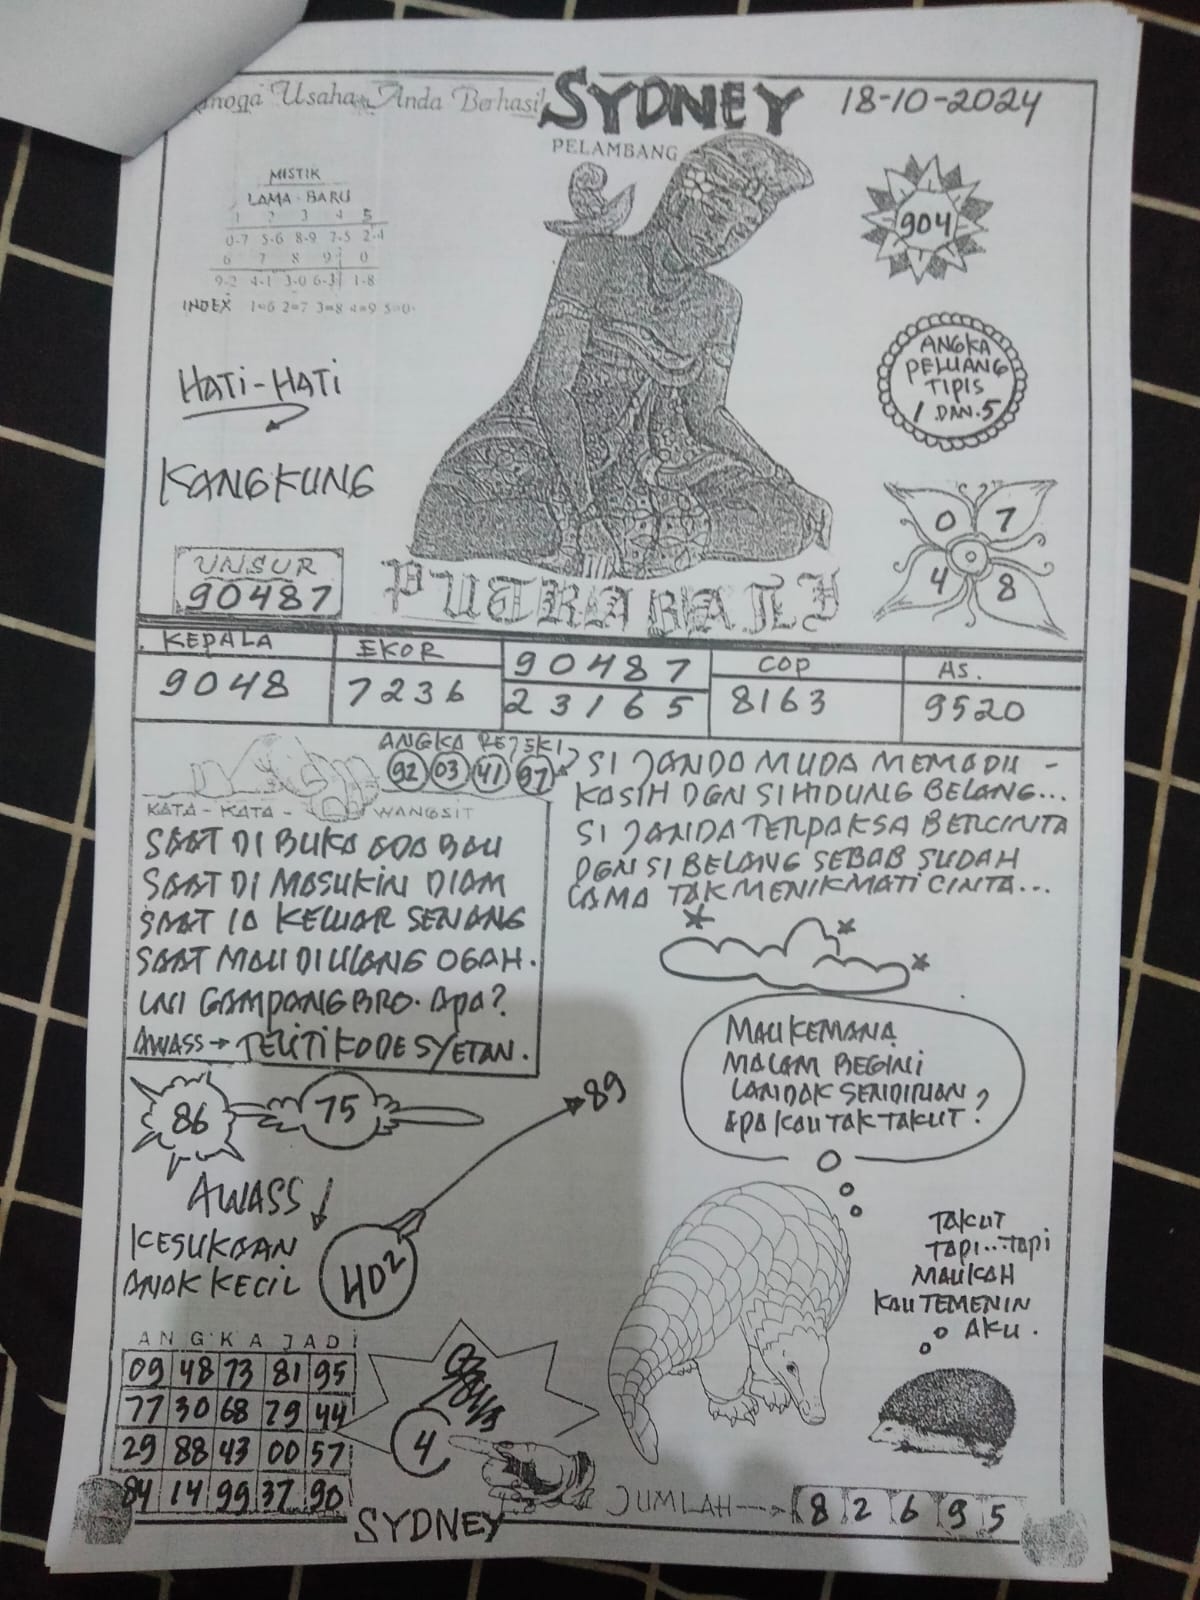 Usaha Anda Berhasil
SYDNEY
18-10-2024
PELAMBANG
MISTIK
LAMA - BARU
1 2 3 4 5
0-7 5-6 8-9 7-5 2-4
6 7 8 9 0
9-2 4-1 3-0 6-3 1-8
INDEX 1=6 2=7 3=8 4=9 5=0
904
HATI-HATI
ANGKA
PELUANG
TIPIS
1 DAN 5
KANGKUNG
0 7
4 8
UNSUR
90487
PUTRA BALI
KEPALA
9048
EKOR
7236
90487
23165
COP
8163
AS.
9520
ANGKA REJEKI
92 03 41 97
KATA - KATA - WANGSIT
SAAT DI BUKA ADA BAU
SAAT DI MASUKIN DIAM
SAAT IA KELUAR SENANG
SAAT MAU DIULANG OGAH.
INI GAMPANG BRO. APA?
AWASS → TELITI KODE SYETAN.
SI JANDA MUDA MEMADU -
KASIH DGN SI HIDUNG BELANG...
SI JANDA TERPAKSA BERCINTA
DGN SI BELANG SEBAB SUDAH
LAMA TAK MENIKMATI CINTA...
MAU KEMANA
MALAM BEGINI
LANDAK SENDIRIAN
APA KAU TAK TAKUT?
86
75
89
AWASS
KESUKAAN
ANAK KECIL
402
TAKUT
TAPI...TAPI
MAUKAH
KAU TEMENIN
AKU.
ANGKA JADI
09 48 73 81 95
77 30 68 79 44
29 88 43 00 57
84 14 99 37 90
4
SYDNEY
JUMLAH → 8 2 6 9 5